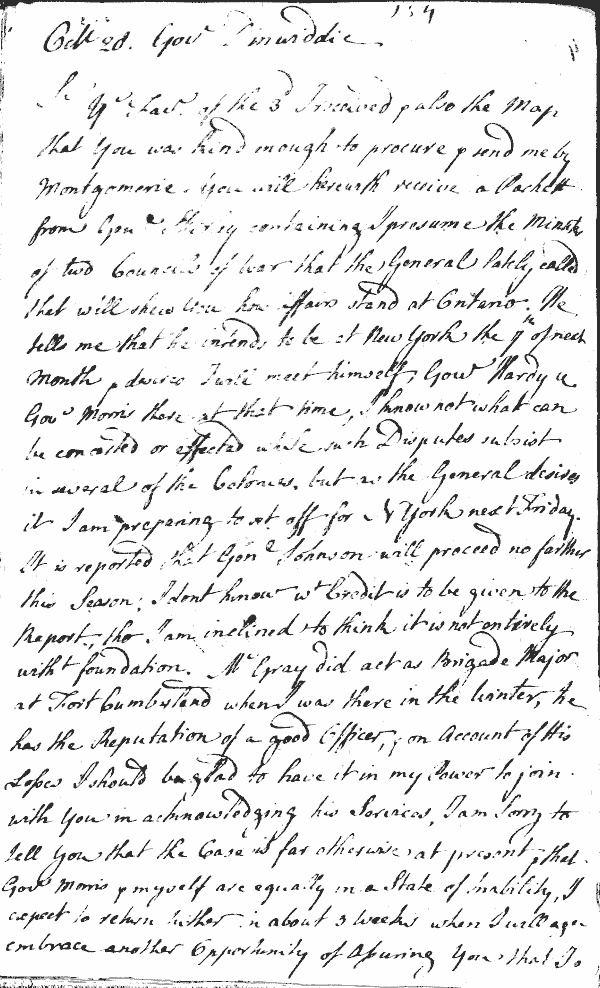 154
Octr 28. Govr Dinwiddie
Sr
Yr Favr. of the 3d I received & also the Map
that You was kind enough to procure & send me by
Montgomerie. You will herewith receive a Packett
from Genl Shirley containing I presume the Minutes
of two Councils of War that the General lately called
that will shew You how affairs stand at Ontario. He
tells me that he intends to be at New York the 7th of next
Month & desires I will meet himself, Govr Hardy &
Govr Morris there at that time, I know not what can
be concerted or effected while such Disputes subsist
in several of the Colonies, but as the General desires
it I am preparing to set off for N York next Friday.
It is reported that Genl Johnson will proceed no farther
this Season; I dont know wt Credit is to be given to the
Report, tho' I am inclined to think it is not entirely
witht foundation. Mr Gray did act as Brigade Major
at Fort Cumberland when I was there in the Winter, he
has the Reputation of a good Officer, & on Account of His
Losses I should be glad to have it in my Power to join
with You in acknowledging his Services, I am Sorry to
tell You that the Case is far otherwise at present, & that
Govr Morris & myself are equally in a State of Inability, I
expect to return hither in about 3 weeks when I will again
embrace another Opportunity of Assuring You that I do